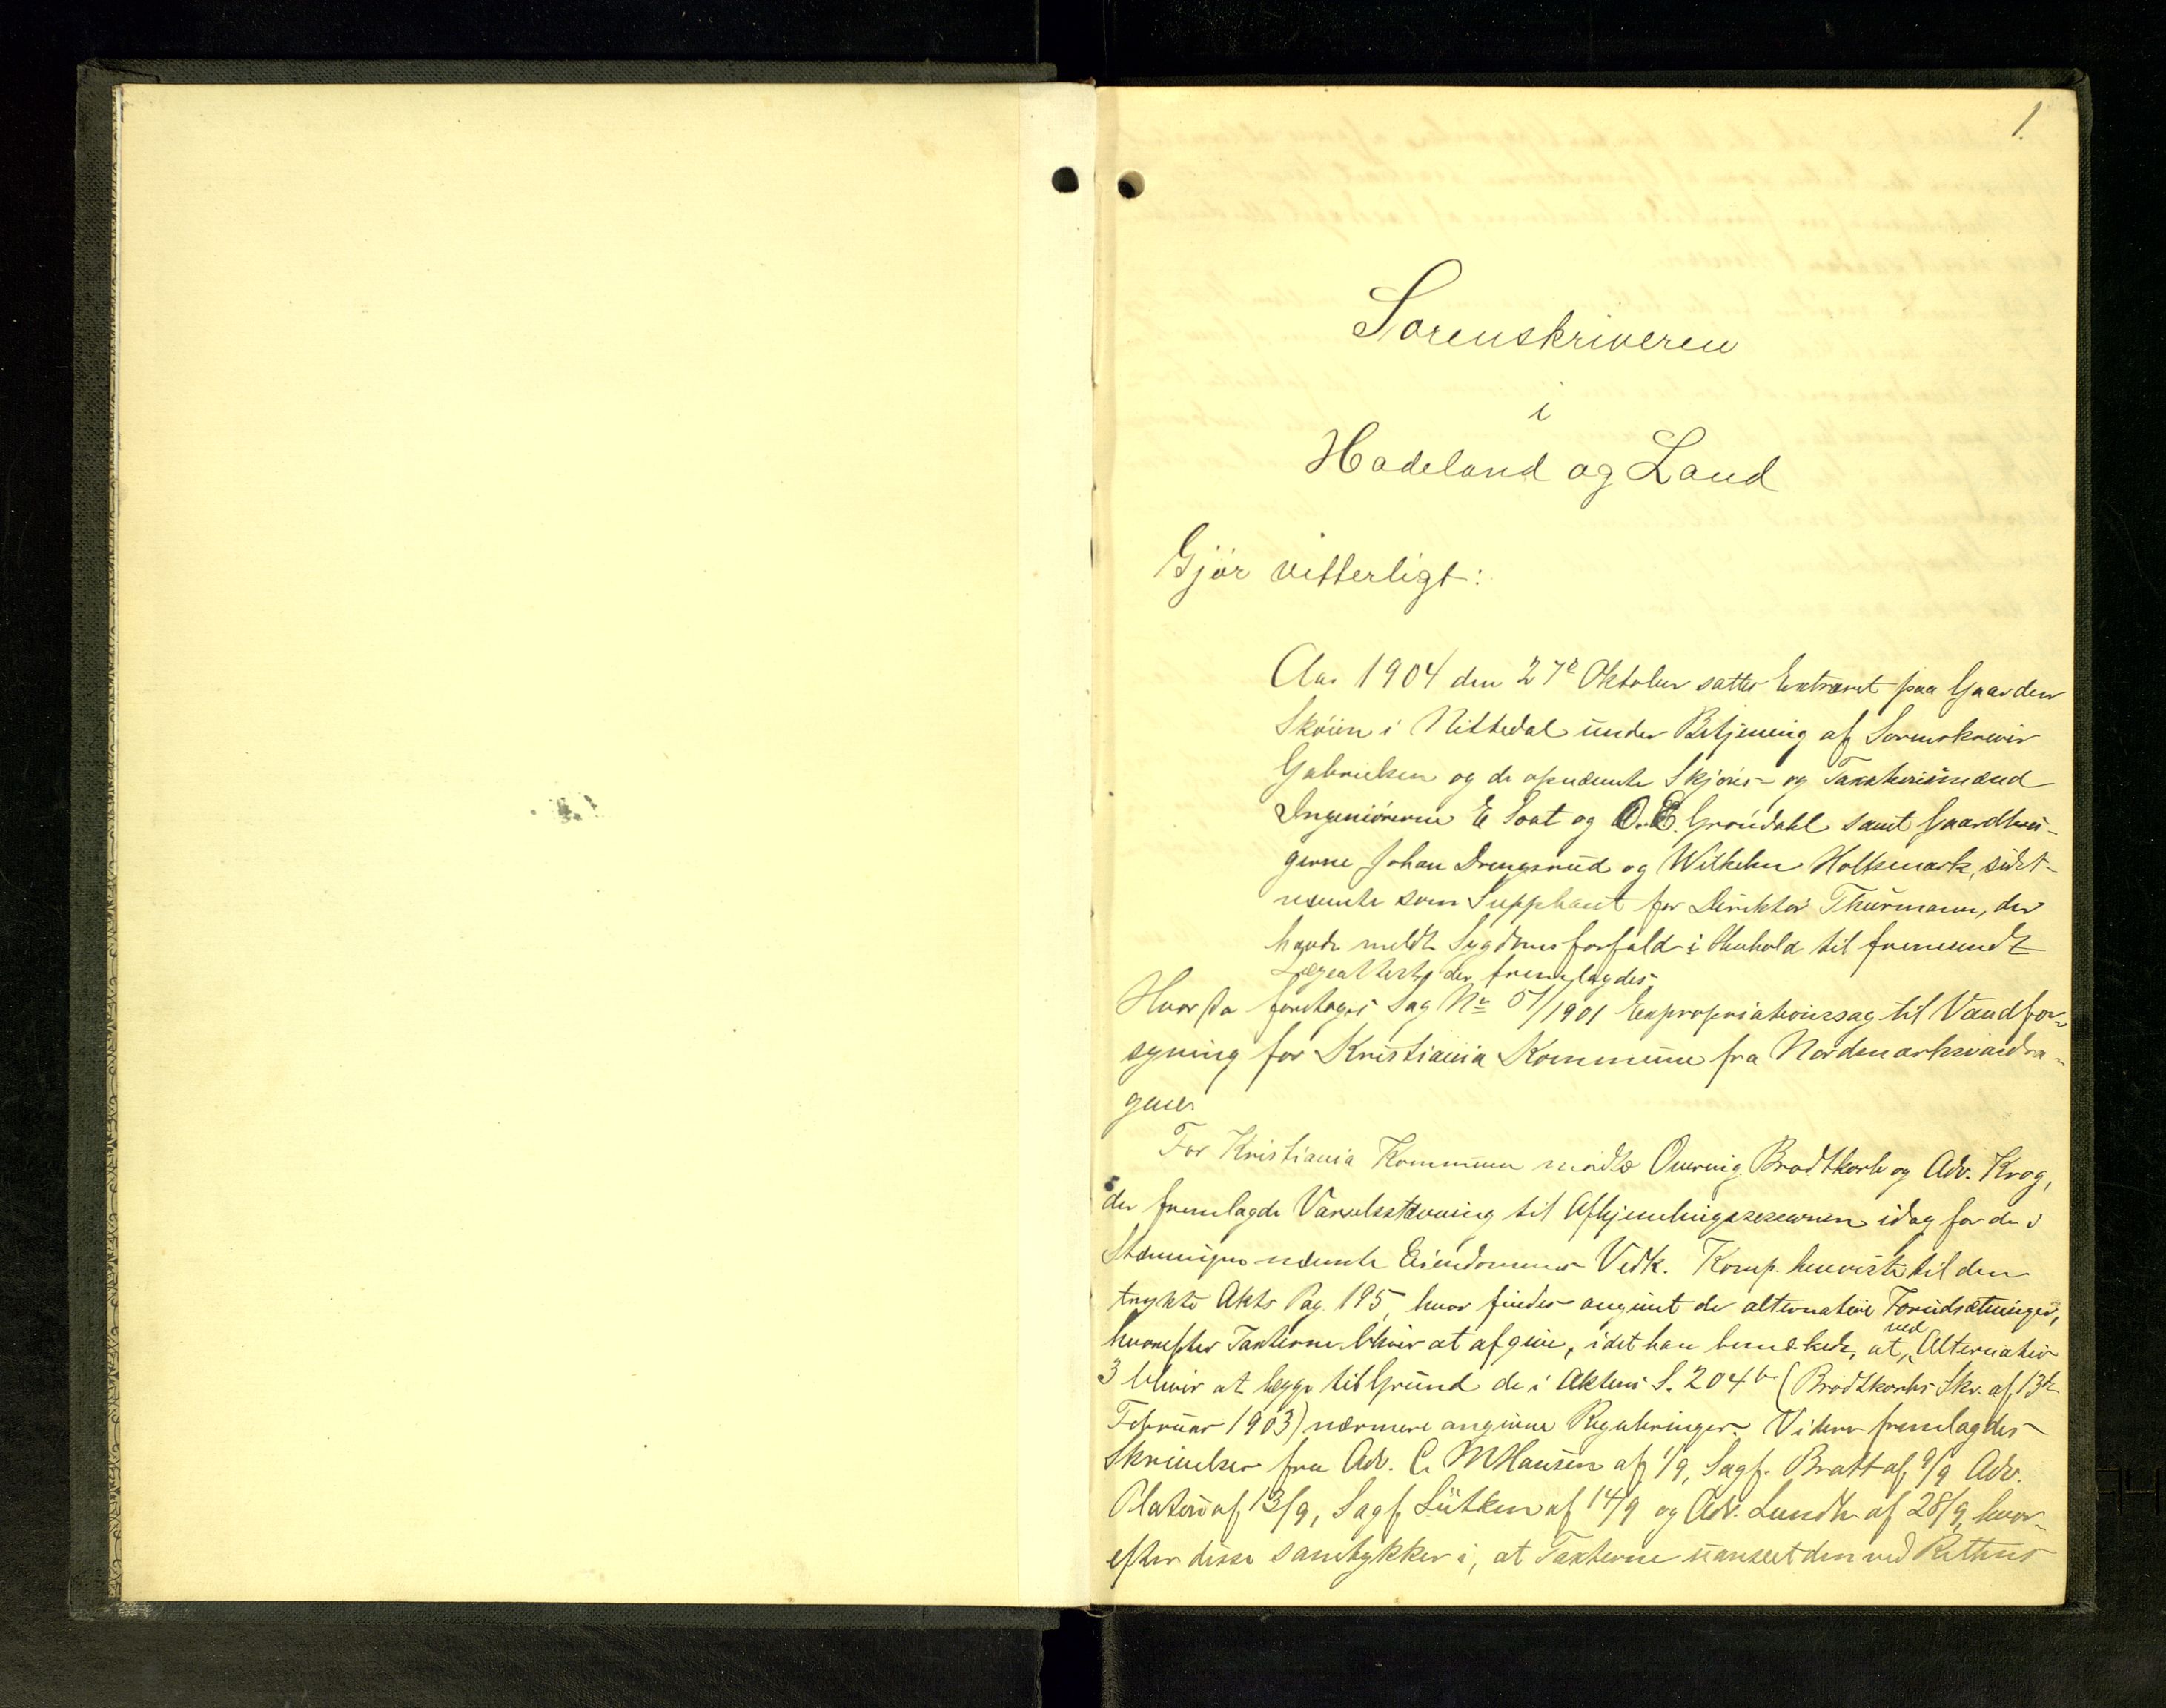 1.
Sorenskriveren
i
Hadeland og Land
Gjör vitterligt:
Aar 1904 den 27de Oktober sattes Extraret paa Gaarden
Sköien i Nittedal under Betjening af Sorenskriver
Gabrielsen og de opnævnte Skjöns- og Taxationsmænd
Ingeniörerne E Soat og O. E. Gröndahl samt Gaardbru-
gerne Johan Drengsrud og Wilhelm Holtsmark, sidst-
nævnte som Suppleant for Direktör Thurmann, der
havde meldt Sygdomsforfald i Henhold til fremsendt
Lægeattest, der fremlagdes.
Hvor da foretoges Sag No 51/1901 Expropriationssag til Vandfor-
syning for Kristiania Kommune fra Nordmarksvandra-
gene.
For Kristiania Kommune mödte Overing. Brodtkorb og Adv. Krog,
der fremlagde Varselsstævning til Afhjemlingssessionen idag for de i
Stævningen nævnte Eiendommes Vedk. Komp. henviste til den
trykte Akts Pag. 195, hvor findes angivet de alternative Forudsætninger,
hvorefter Taxterne bliver at afgive, idet han bemærkede, at ved Alternativ
3 bliver at lægge til Grund de i Aktens S. 204 b (Brodtkorbs Skr. af 13de
Februar 1903) nærmere angivne Reguleringer. Videre fremlagdes
Skrivelser fra Adv. C. M Hansen af 1/9, Sagf. Bratt af 9/9 Adv.
Platou af 13/9, Sagf. Lütken af 14/9 og Adv. Lundh af 28/9, hvor-
efter disse samtykker i, at Taxterne uanseet den ved Rettens